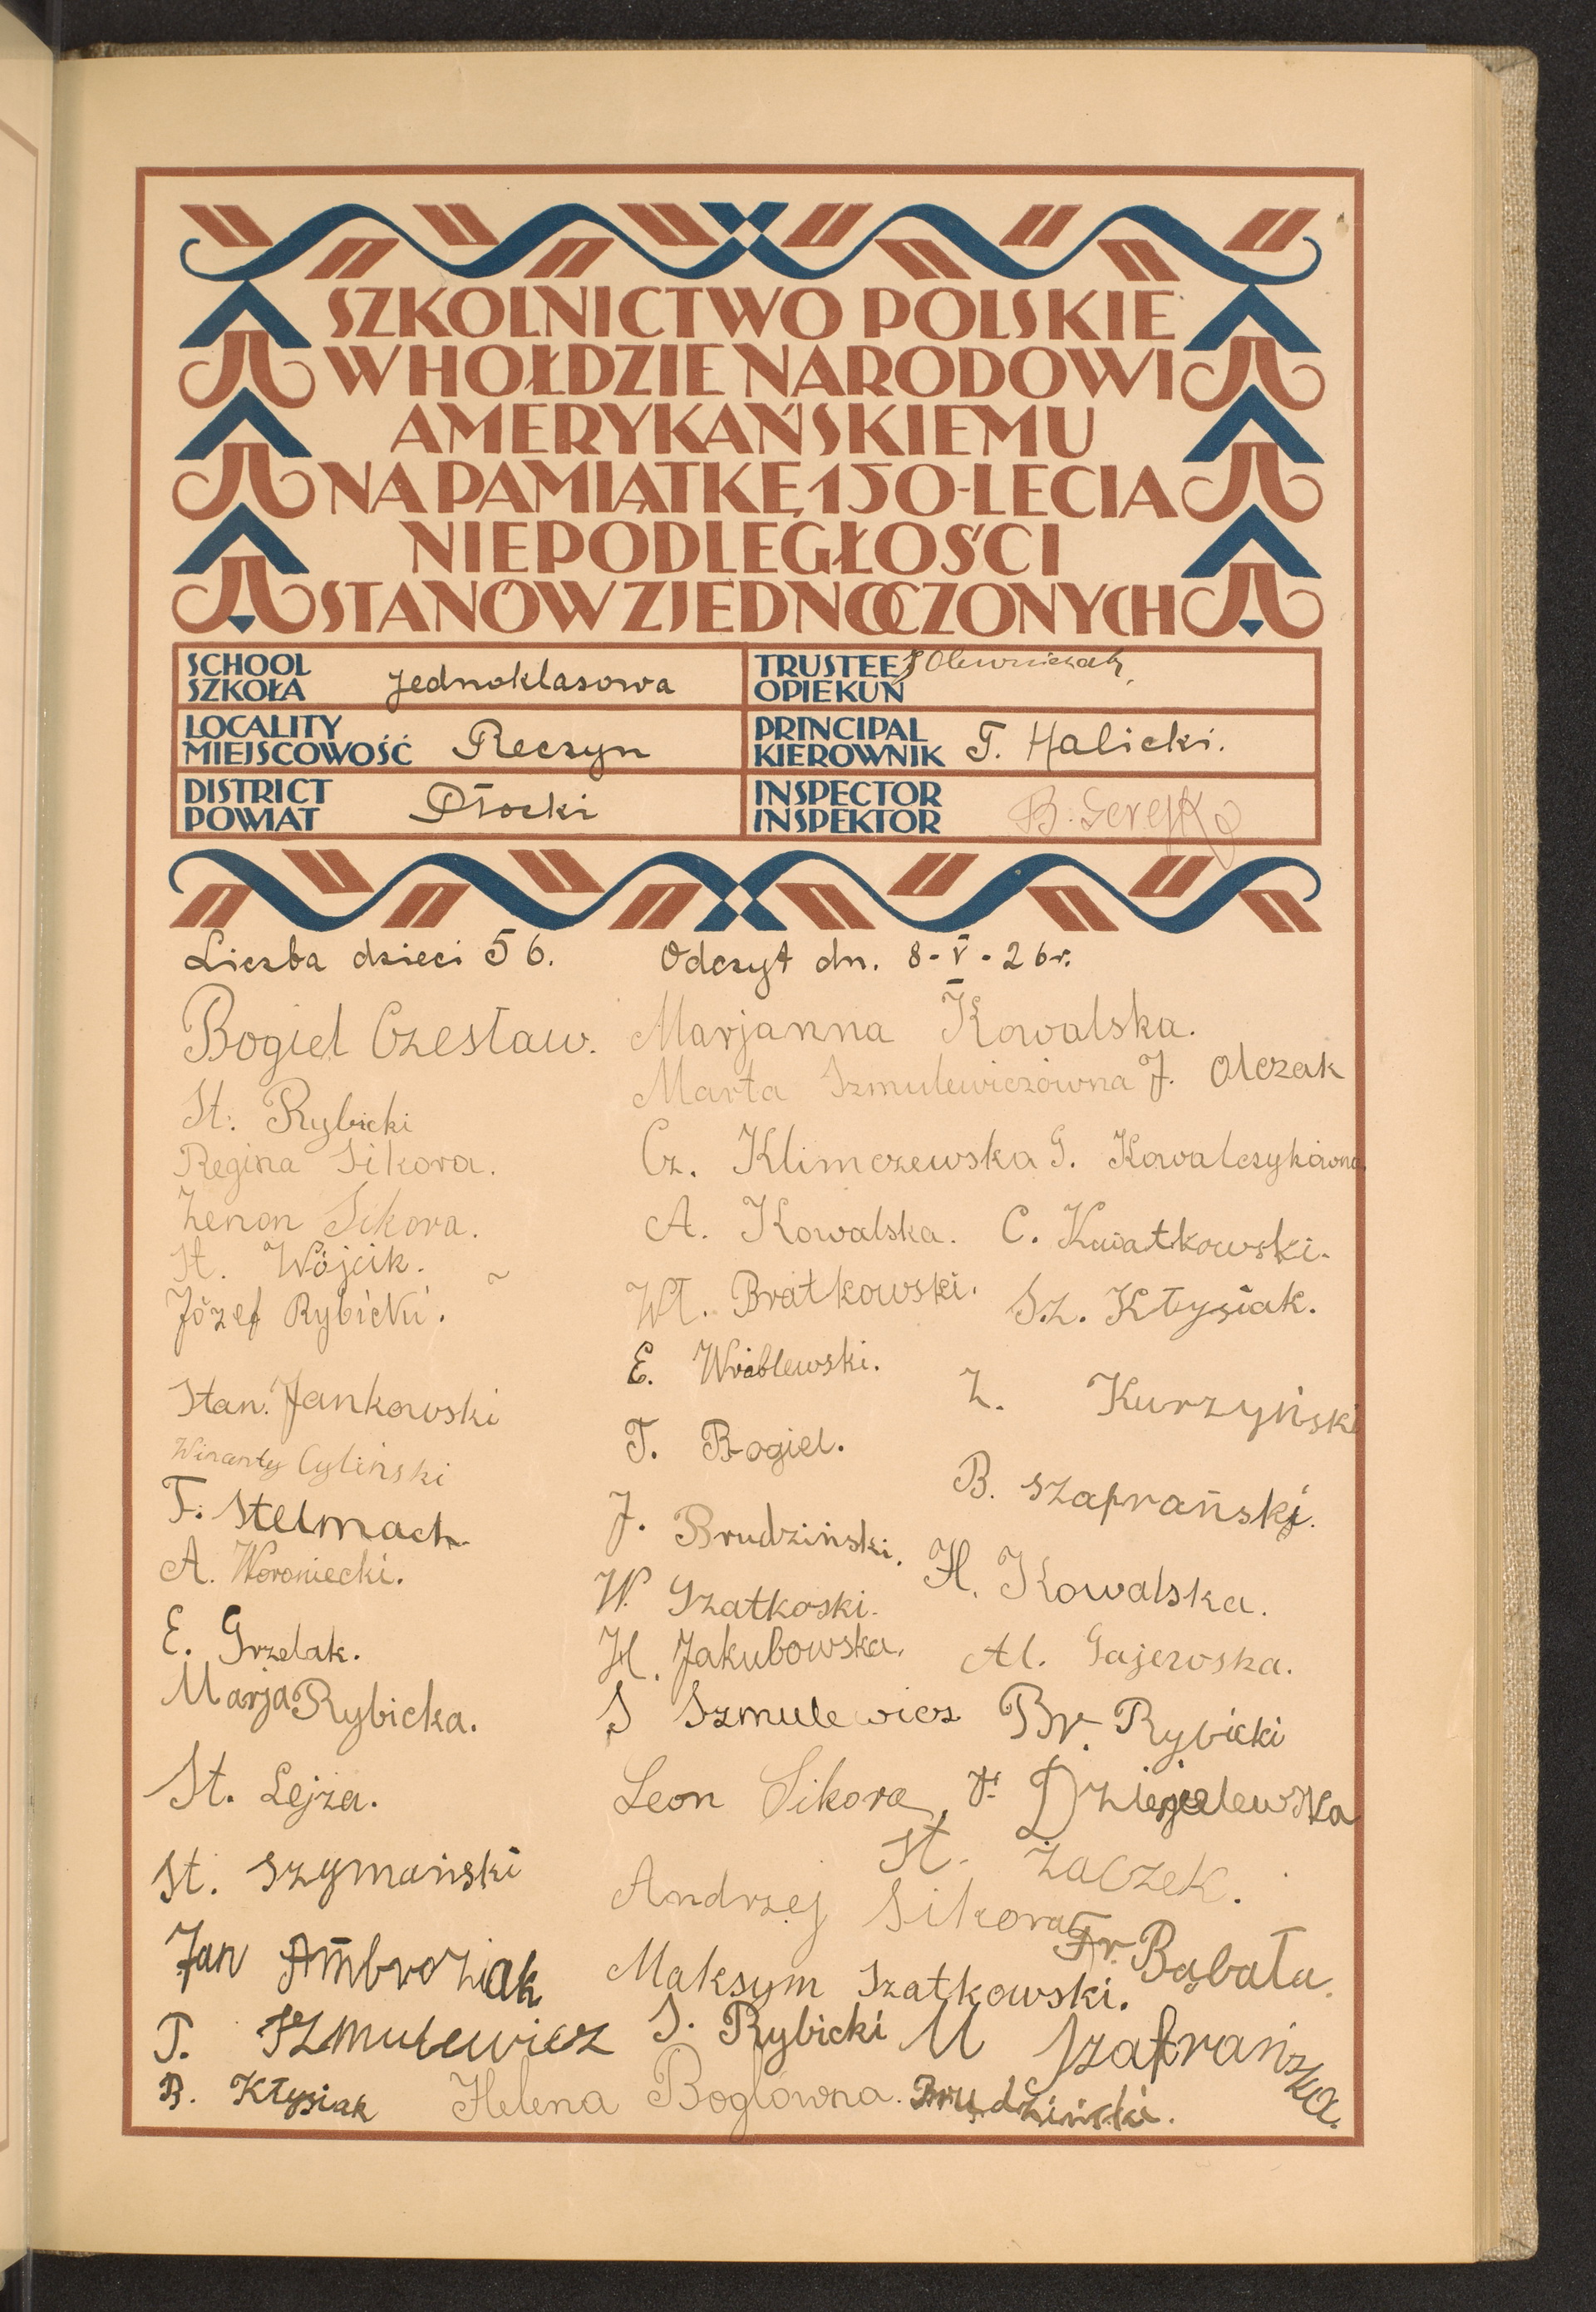 SZKOLNICTWO POLSKIE
W HOŁDZIE NARODOWI
AMERYKAŃSKIEMU
NA PAMIĄTKĘ 150-LECIA
NIEPODLEGŁOŚCI
STANÓW ZJEDNOCZONYCH
SCHOOL
SZKOŁA
Jednoklasowa
TRUSTEE
OPIEKUN
LOCALITY
MIEJSCOWOŚĆ
Reczyn
PRINCIPAL
KIEROWNIK
T. Halicki.
DISTRICT
POWIAT
Płocki
INSPECTOR
INSPEKTOR
B.
Liczba dzieci 56. Odczyt dn. 8-V-26r.
Bogiel Czesław.
St. Rybicki
Regina Sikora.
Zenon Sikora.
St. Wójcik.
Józef Rybicki.
Stan. Jankowski
Wincenty Cyliński
F. Stelmach
A. Woroniecki.
E. Grzelak.
Marja Rybicka.
St. Lejza.
St. Szymański
Jan Ambroziak
T. Szmulewicz
B. Kłysiak
Marjanna Kowalska.
Marta Szmulewiczówna
Cz. Klimczewska
A. Kowalska.
Wł. Bratkowski.
E. Wróblewski.
T. Bogiel.
J. Brudziński.
W. Szatkoski.
H. Jakubowska.
S Szmulewicz
Leon Sikora
Andrzej Sikora
Maksym Szatkowski.
S. Rybicki
Helena Boglówna.
J. Olczak
G. Kowalczykówna
C. Kwiatkowski.
Sz. Kłysiak.
Z. Kurzyński
B. Szafrański.
H. Kowalska.
Al. Gajewska.
Br. Rybicki
Dzięgielewska
St. Żaczek.
Fr. Bąbała.
M Szafrańska.
Brudziński.